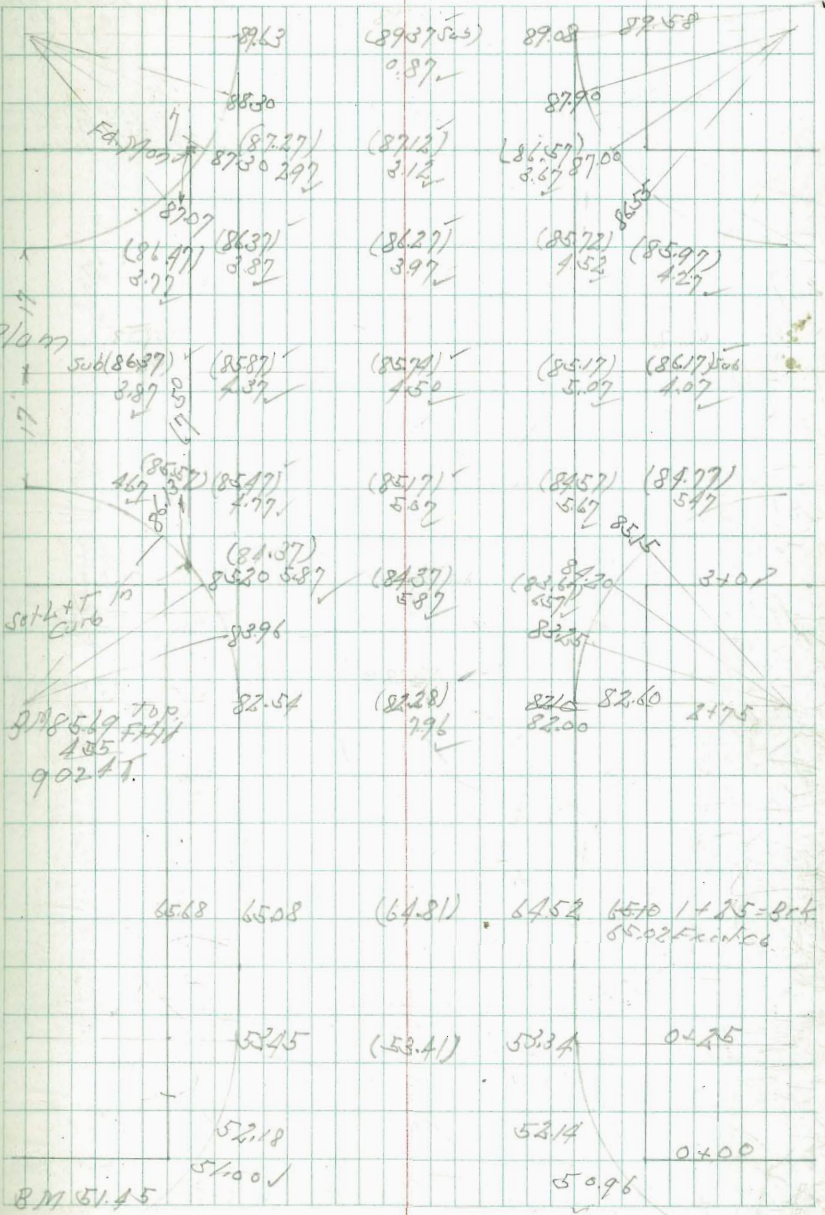 89.63 (89.37 Sub) 89.08 89.58
0.87 ✓
88.30 87.90
7
(87.27) (87.12) (86.57)
87.30 2.97 ✓ 3.12 ✓ 3.67 ✓ 87.00
87.07 86.55
(86.47) (86.37) (86.27) (85.72) (85.97)
3.77 ✓ 3.87 ✓ 3.97 ✓ 4.52 ✓ 4.27 ✓
17
17
Sub (86.37) (85.87) (85.74) (85.17) (86.17) Sub
3.87 ✓ 4.37 ✓ 4.50 ✓ 5.07 ✓ 4.07 ✓
(85.57) (85.47) (85.17) (84.57) (84.77)
4.67 ✓ 4.77 ✓ 5.07 ✓ 5.67 ✓ 5.47
85.15
(84.37)
85.20 5.87 ✓ (84.37) (83.67) 84.20 3+07
5.87 ✓ 6.57 ✓
Set L+T in
Curb
83.96 83.25
82.54 (82.28) 82.10 82.60 2+75
7.96 ✓ 82.00
BM 85.69 Top
4.55
90.24 T.
65.68 65.08 (64.81) 64.52 65.10 1+25=Brk
65.02
53.45 (53.41) 53.34 0+25
52.18 52.14
51.00 ✓ 0+00
50.96 ✓
BM 51.45